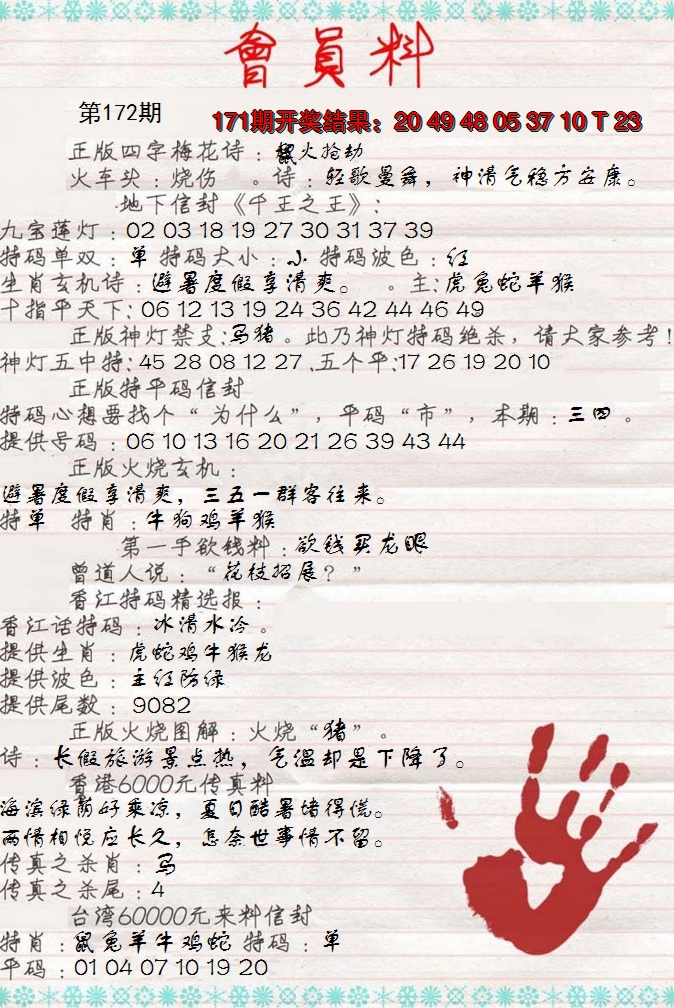 會員料
第172期
171期开奖结果：20 49 48 05 37 10 T 23
正版四字梅花诗：鼠火抢劫
火车头：烧伤 。诗：轻歌曼舞，神清气稳方安康。
地下信封《千王之王》：
九宝莲灯：02 03 18 19 27 30 31 37 39
特码单双：单 特码大小：小 特码波色：红
生肖玄机诗：避暑度假享清爽。 。主：虎兔蛇羊猴
十指平天下：06 12 13 19 24 36 42 44 46 49
正版神灯禁支：马猪。此乃神灯特码绝杀，请大家参考！
神灯五中特：45 28 08 12 27 .五个平：17 26 19 20 10
正版特平码信封
特码心想要找个“为什么”，平码“市”，本期：三四。
提供号码：06 10 13 16 20 21 26 39 43 44
正版火烧玄机：
避暑度假享清爽，三五一群客往来。
特单 特肖：牛狗鸡羊猴
第一手欲钱料：欲钱买龙眼
曾道人说：“花枝招展？”
香江特码精选报：
香江话特码：冰清水冷。
提供生肖：虎蛇鸡牛猴龙
提供波色：主红防绿
提供尾数：9082
正版火烧图解：火烧“猪”。
诗：长假旅游景点热，气温却是下降了。
香港6000元传真料
海滨绿荫好乘凉，夏日酷暑堵得慌。
两情相悦应长久，怎奈世事情不留。
传真之杀肖：马
传真之杀尾：4
台湾60000元来料信封
特肖：鼠兔羊牛鸡蛇 特码：单
平码：01 04 07 10 19 20